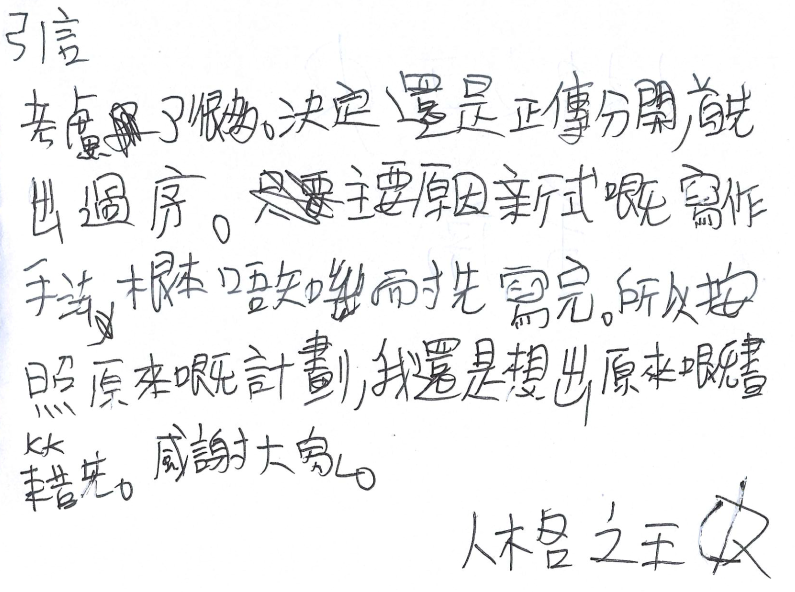 引言
考慮了很多。決定還是正傳分開,首先
出過序。主要原因新式嘅寫作
手法,根本唔知幾時先寫完。所以按
照原來嘅計劃,我還是想出原來嘅書
KK
先。感謝大家。
人格之王